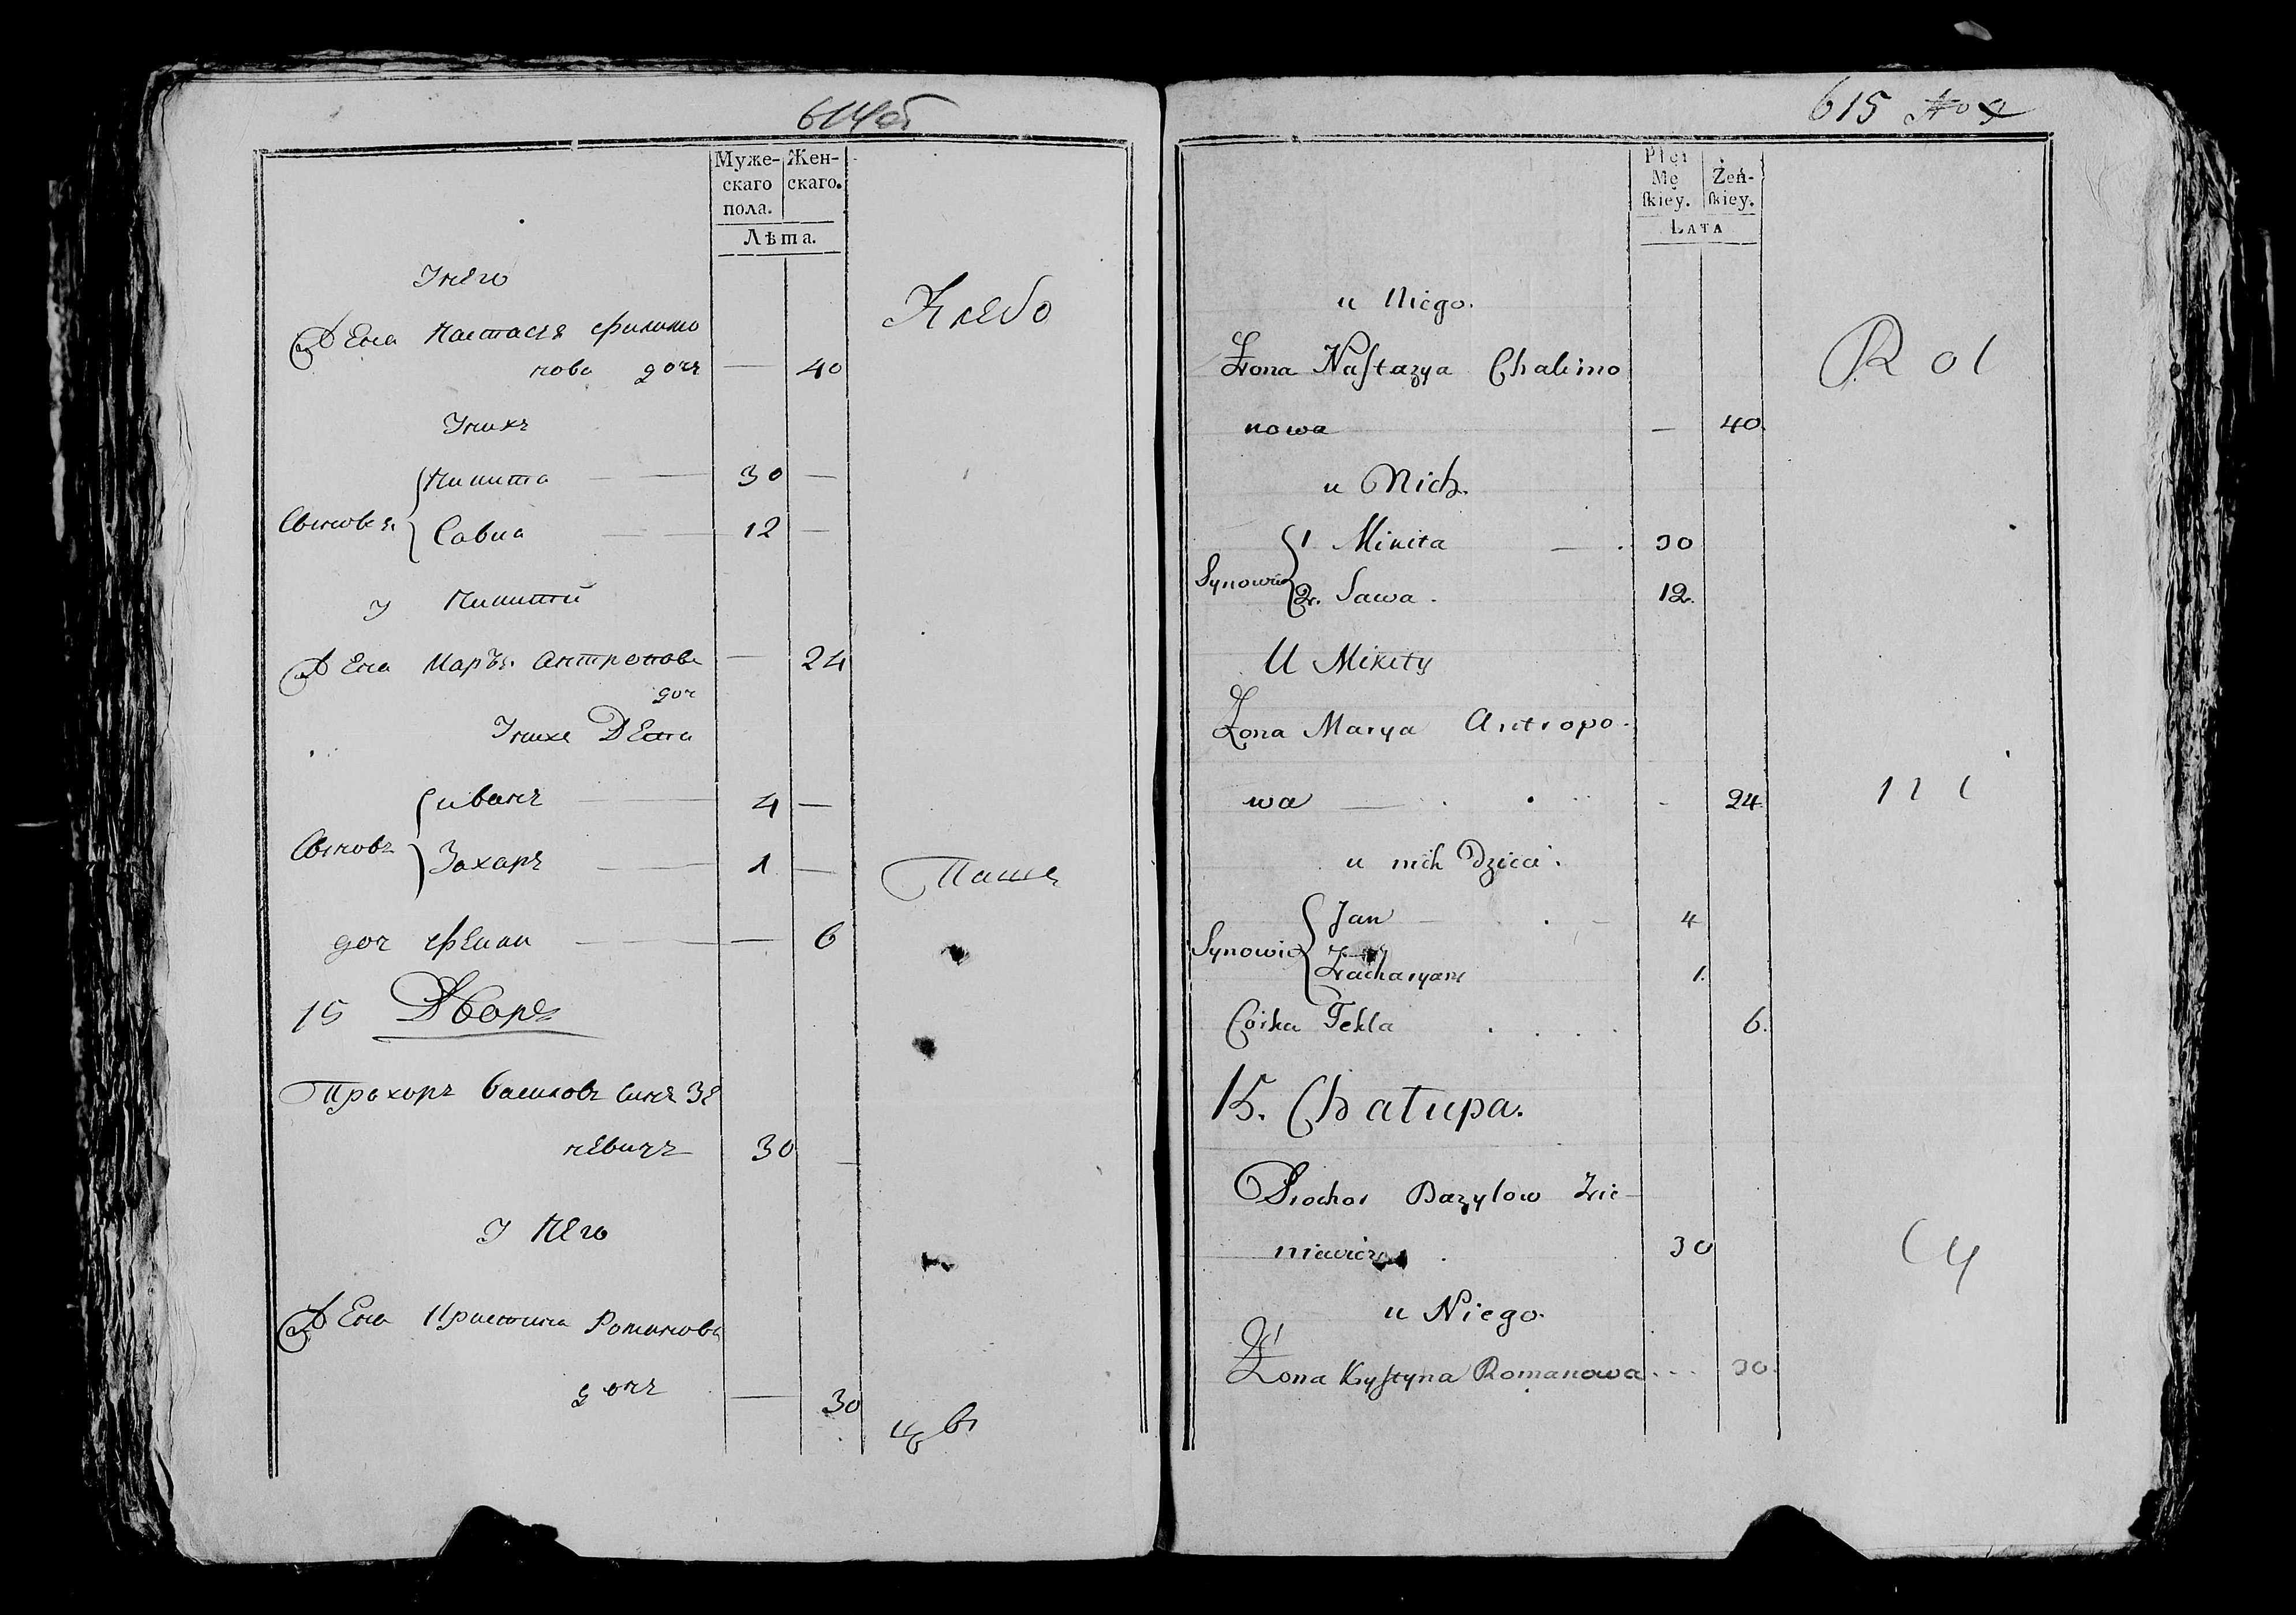 614об
Муже-
скаго
пола.
Жен-
скаго.
Лѣта.
Унего
Жена Настася Филимо
нова доч 40
Унихъ
Сыновя. Микита 30
Савка 12
У Микиты
Жена Маря Антропова 24
доч
Унихъ Дети
Сыновя иванъ 4
Захаръ 1
доч Фекли 6
15 Дворъ
Прохоръ Василовъ синъ Зе
невичъ 30
У Него
Жена Кристина Романова
дочъ 30
Хлебо
Паше
цы
615
Płci
Mę
ſkiey.
Żeń-
ſkiey.
Lata
u Niego.
Żona Naſtazya Chalimo
nowa 40.
u Nich.
Synowie 1. Mikita 30
2. Sawa. 12.
U Mikity
Żona Marya Antropo-
wa 24.
u nich Dzieci.
Synowie Jan 4
Zacharyasz 1.
Corka Tekla 6.
15. Chałupa.
Prochor Bazylow Zie-
niewicz 30
u Niego.
Żona Kryſtyna Romanowa 30.
Rol
ni
cy